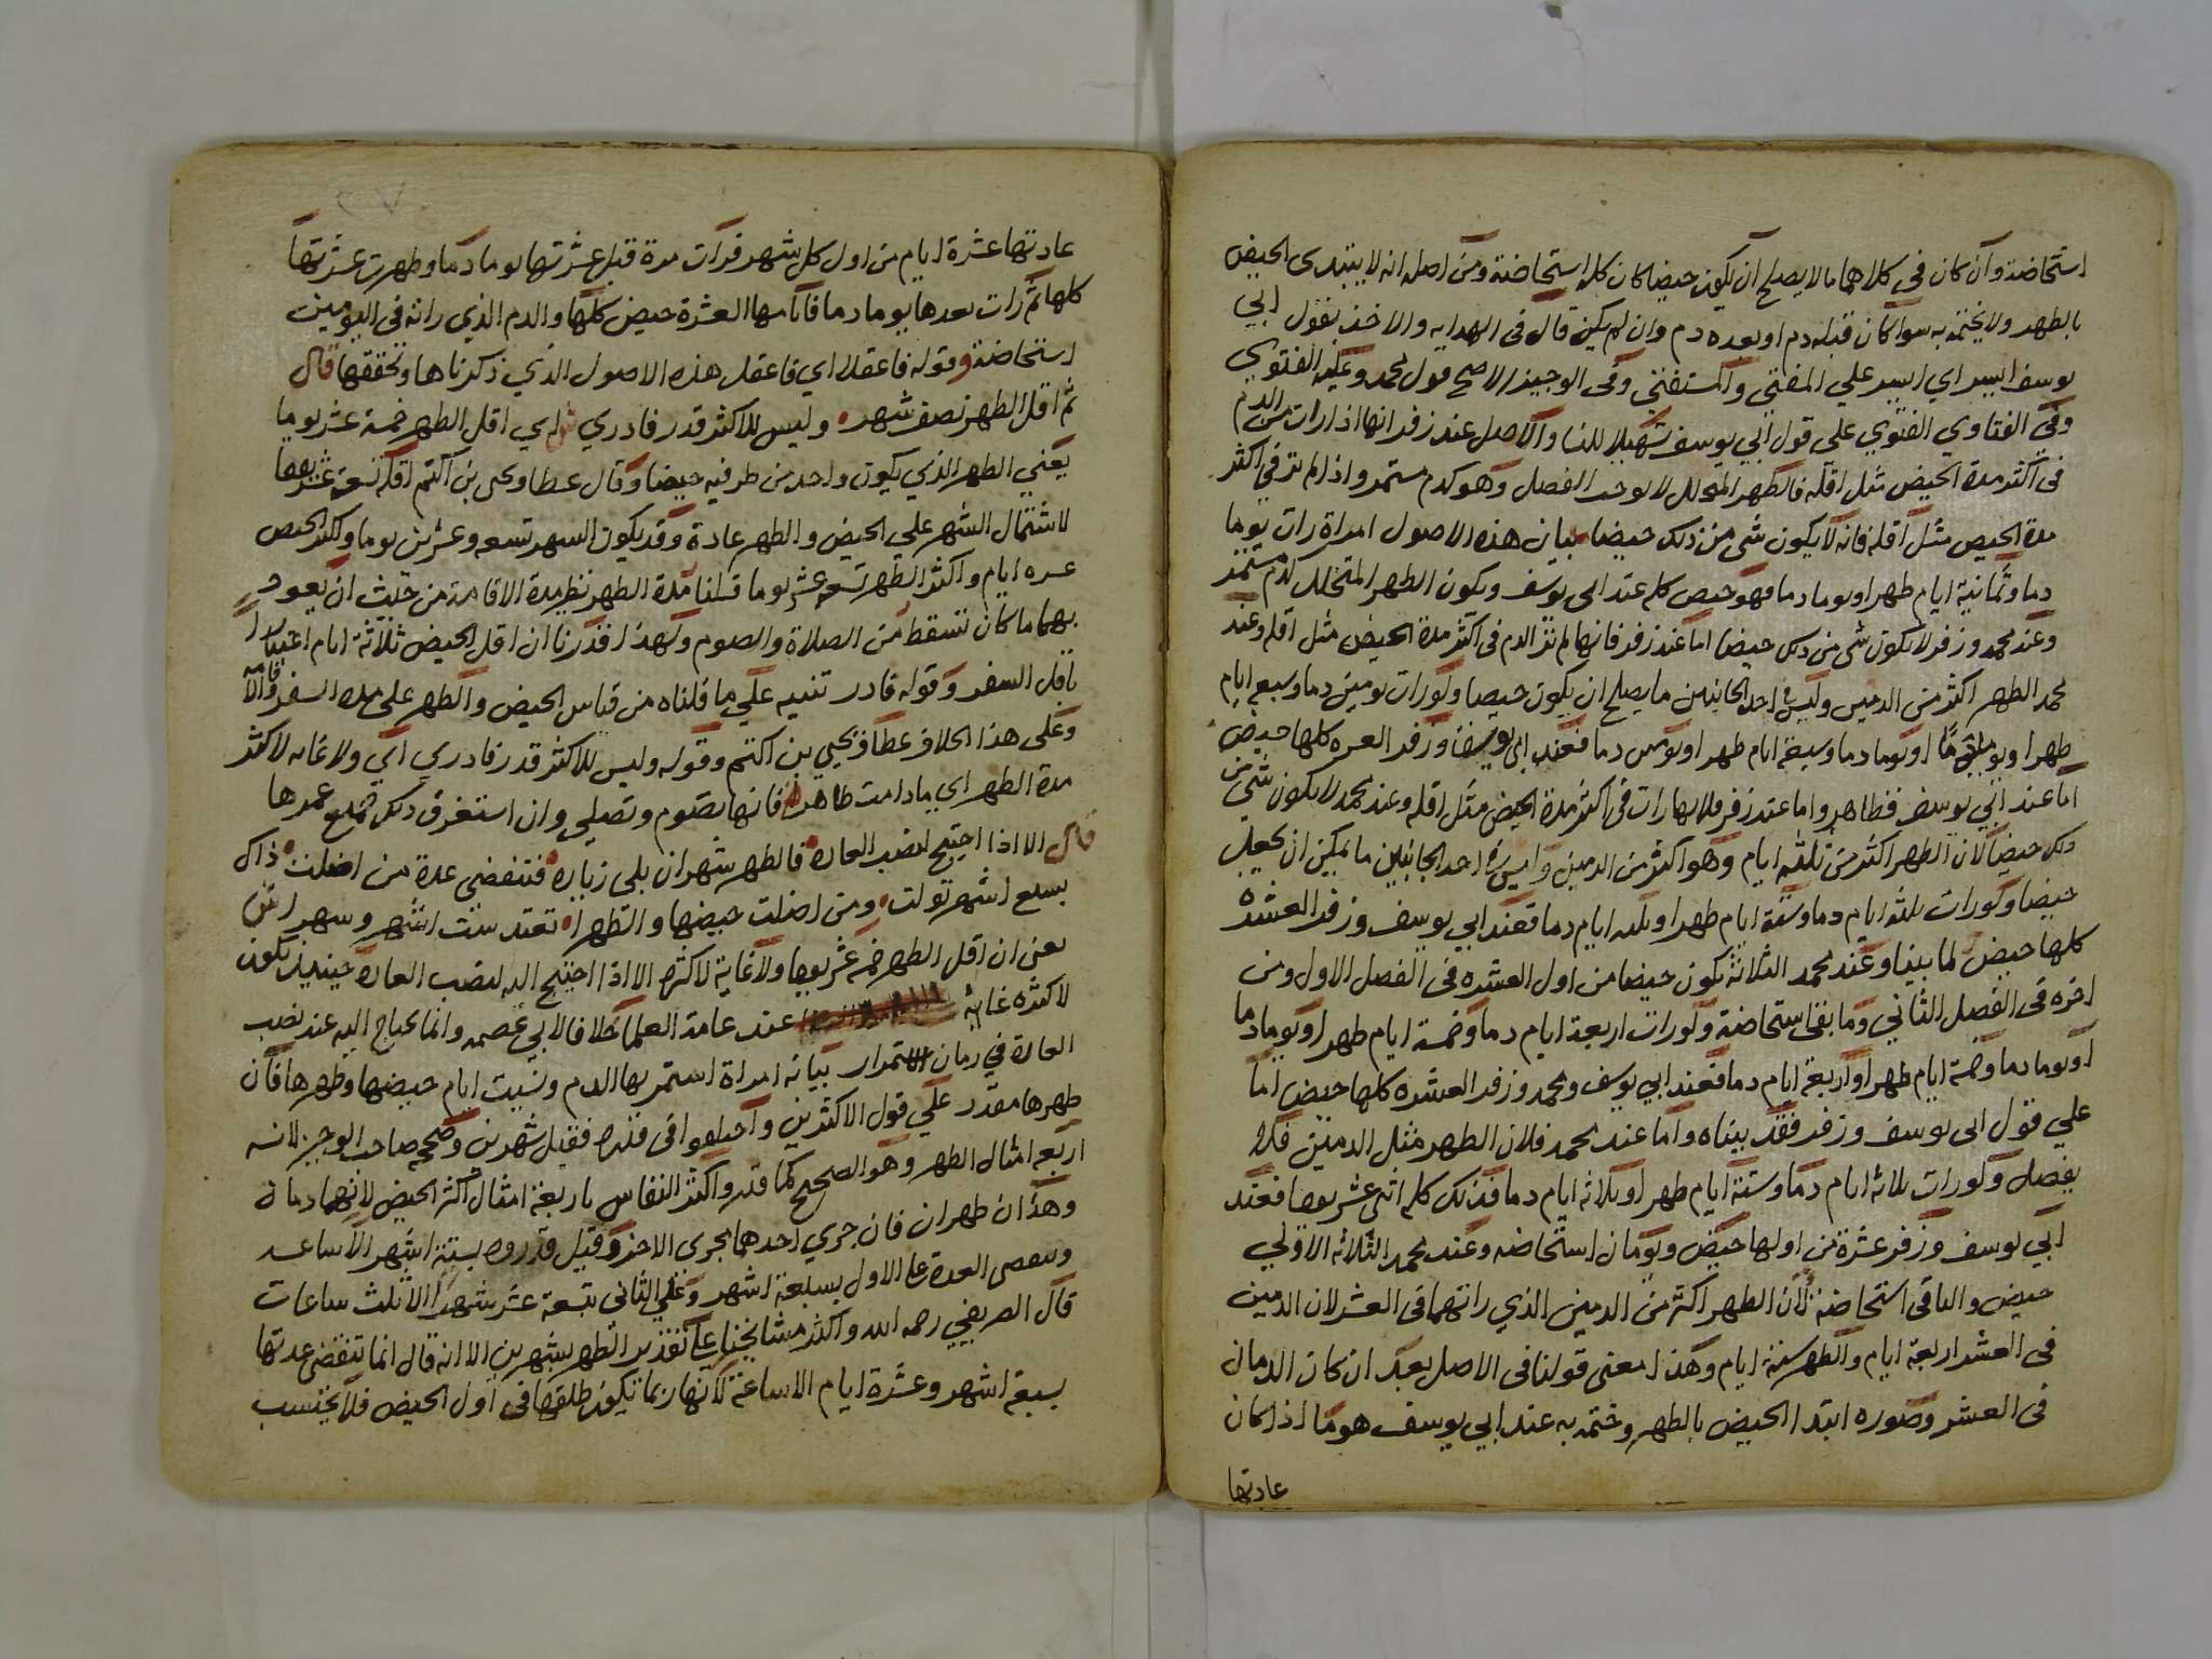 استحاضة وان كان في كلاهما ما لا يصلح ان يكون حيضا كان كله استحاضة ومن اصله انه لا يبتدى الحيض
بالطهر ولا يختمه به سوا كان قبله دم او بعده دم وان لم يكن قال في الهدايه والاخذ بقول ابي
يوسف ايسر اي ايسر علي المفتي والمستفتي وفي الوجيز الاصح قول محمد وعليه الفتوي
وفي الفتاوي الفتوي علي قول ابي يوسف تسهيلا للنسا والاصل عند زفر انها اذا رات من الدم
في اكثر مدة الحيض مثل اقله فالطهر المتخلل لا يوجب الفصل وهو كدم مستمر واذا لم تر في اكثر
مدة الحيض مثل اقله فانه لا يكون شي من ذلك حيضا بيان هذه الاصول امراة رات يوما
دما وثمانية ايام طهرا ويوما دما فهو حيض كله عند ابي يوسف ويكون الطهر المتخلل كدم مستمر
وعند محمد وزفر لا يكون شي من ذلك حيضا اما عند زفر فانها لم تر الدم في اكثر مدة الحيض مثل اقله وعند
محمد الطهر اكثر من الدمين وليس في احد الجانبين ما يصلح ان يكون حيضا ولو رات يومين دما وسبعة ايام
طهرا ويوما دما او يوما دما وسبعة ايام طهرا ويومين دما فعند ابي يوسف وزفر العشرة كلها حيض
اما عند ابي يوسف فظاهر واما عند زفر فلانها رات في اكثر مدة الحيض مثل اقله وعند محمد لا يكون شي من
ذلك حيضا لان الطهر اكثر من ثلثه ايام وهو اكثر من الدمين وليس في احد الجانبين ما يمكن ان يجعل
حيضا ولو رات ثلثه ايام دما وستة ايام طهرا او ثلثه ايام دما فعند ابي يوسف وزفر العشرة
كلها حيض لما بينا وعند محمد الثلاثة يكون حيضا من اول العشره في الفصل الاول ومن
اخره في الفصل الثاني وما بقى استحاضة ولو رات اربعة ايام دما وخمسة ايام طهرا ويوما دما
او يوما دما وخمسة ايام طهرا واربعة ايام دما فعند ابي يوسف ومحمد وزفر العشره كلها حيض اما
علي قول ابي يوسف وزفر فقد بيناه واما عند محمد فلان الطهر مثل الدمين فلا
يفصل ولو رات ثلاثه ايام دما وستة ايام طهرا وثلاثه ايام دما فذلك كله اثنى عشر يوما فعند
ابي يوسف وزفر عشرة من اولها حيض ويومان استحاضه وعند محمد الثلاثه الاولي
حيض والباقي استحاضة لان الطهر اكثر من الدمين الذي راتهما في العشر لان الدمين
في العشر اربعة ايام والطهر ستة ايام وهذا معنى قولنا في الاصل بعد ان كان الدمان
في العشر وصوره ابتدا الحيض بالطهر وختمه به عند ابي يوسف هو ما اذا كان
عادتها
عادتها عشرة ايام من اول كل شهر فرات مرة قبل عشرتها يوما دما وطهرت عشرتها
كلها ثم رات بعدها يوما دما فايامها العشرة حيض كلها والدم الذي راته في اليومين
استحاضة وقوله فاعقلا اي فاعقل هذه الاصول الذي ذكرناها وتحققها قال
ثم اقل الطهر نصف شهر وليس للاكثر قدر فادري اي اقل الطهر خمسة عشر يوما
يعني الطهر الذي يكون واحد من طرفيه حيضا وقال عطا ويحيى بن اكثم اقله تسعة عشر يوما
لاشتمال الشهر علي الحيض والطهر عادة وقد يكون الشهر تسعه وعشرين يوما واكثر الحيض
عشره ايام واكثر الطهر تسعه عشر يوما قلنا مدة الطهر نظير مدة الاقامة من حيث ان يعود
بهما ما كان تسقط من الصلاة والصوم ولهذا قدرنا ان اقل الحيض ثلاثة ايام اعتبارا
باقل السفر وقوله فادر تنبيه علي ما قلناه من قياس الحيض والطهر على مدة السفر والاقامة
وعلى هذا الخلاف عطا ويحيي بن اكثم وقوله وليس للاكثر قدر فادري اي ولا غايه لاكثر
مدة الطهر اي ما دامت طاهرة فانها تصوم وتصلي وان استغرق ذلك جميع عمرها
قال الا اذا احتيج لنصب العاده فالطهر شهران بلى زياده فتنقضي عدة من اضلت ذاك
بسبع اشهر تولت ومن اضلت حيضها والطهرا تعتد ست اشهر وشهرا
يعنى ان اقل الطهر خمسة عشر يوما ولا غاية لاكثره الا اذا احتيج اليه لنصب العادة حينيذ يكون
لاكثره غاية عند عامة العلما خلافا لابي عصمه وانما يحتاج اليه عند نصب
العادة في زمان الاستمرار بيانه امراة استمر بها الدم ونسيت ايام حيضها وطهرها فان
طهرها مقدر علي قول الاكثرين واختلفوا في قدره فقيل شهرين وصححه صاحب الوجيز لانه
اربعه امثال الطهر وهو الصحيح كما قدر واكثر النفاس باربعة امثال اكثر الحيض لانهما دمان
وهذان طهران فان جري احدهما مجرى الاخر وقيل قدروه بستة اشهر الا ساعه
وتنقضى العدة علي الاول بسبعة اشهر وعلي الثاني تسعة عشر شهرا الا ثلث ساعات
قال المرغيني رحمه الله واكثر مشايخنا علي تقدير الطهر بشهرين الا انه قال انما تنقضى عدتها
بسبعة اشهر وعشرة ايام الا ساعة لانها ربما يكون طلقها في اول الحيض فلا يحتسب